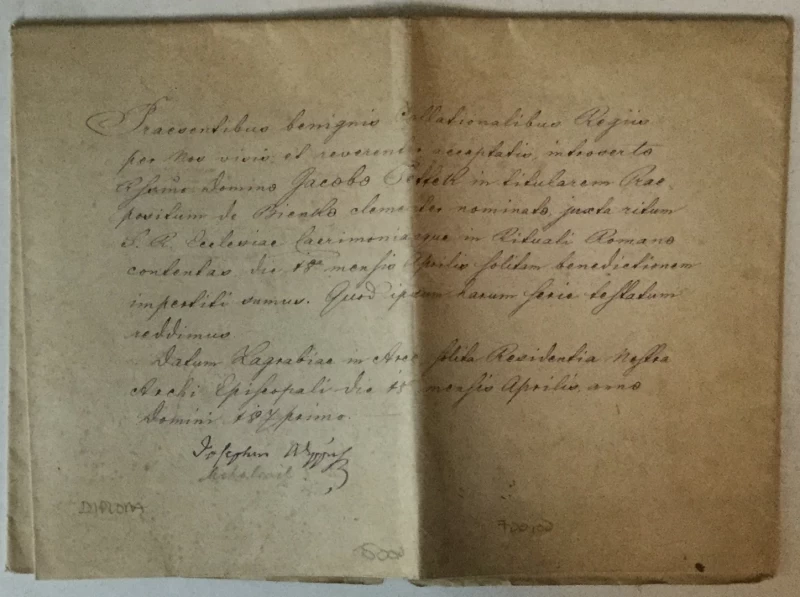 Praesentibus benignis Collationalibus Regiis
per Nos visis, et reverenter acceptatis, introserto
Domino Jacobo in titularem Prae,
positum de clementer nominato, juxta ritum
S. R. Ecclesiae Caerimoniasque in Rituali Romano
contentas, die 18a mensis Aprilis solitam benedictionem
impertiti sumus. Quod ipsum harum serie testatum
reddimus.
Datum Zagrabiae in Arce, solita Residentia Nostra
Archi Episcopali die 18 mensis Aprilis, anno
Domini 187 primo.
Josephus
DIPLOMA